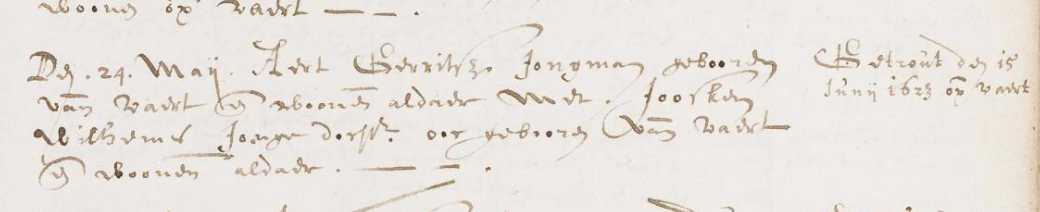 woonen op vaert
Den . 24. Maij . Aert Gerritsz. Jongman gebooren
van vaert en woonen aldaer Met . Joosken
Wilhems Jonge dochtr. ooc gebooren van vaert
en woonen aldaer .
Getrout den 15
Junij 1623 op vaert